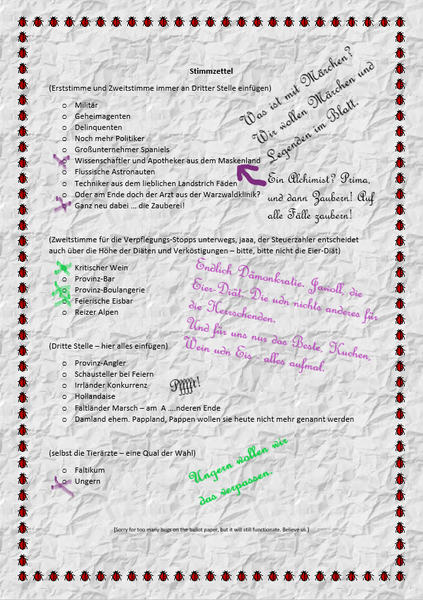 Stimmzettel
(Erststimme und Zweitstimme immer an Dritter Stelle einfügen)
Was ist mit Märchen?
Wir wollen Märchen und
Legenden im Blatt.
o Militär
o Geheimagenten
o Delinquenten
o Noch mehr Politiker
o Großunternehmer Spaniels
o Wissenschaftler und Apotheker aus dem Maskenland
o Flussische Astronauten
o Techniker aus dem lieblichen Landstrich Fäden
o Oder am Ende doch der Arzt aus der Warzwaldklinik?
o Ganz neu dabei ... die Zauberei!
Ein Alchimist? Prima,
und dann Zaubern! Auf
alle Fälle zaubern!
(Zweitstimme für die Verpflegungs-Stopps unterwegs, jaaa, der Steuerzahler entscheidet
auch über die Höhe der Diäten und Verköstigungen – bitte, bitte nicht die Eier-Diät)
o Kritischer Wein
o Provinz-Bar
o Provinz-Boulangerie
o Feierische Eisbar
o Reizer Alpen
Endlich Dämonkratie. Jawoll, die
Eier-Diät. Die udn nichts anderes für
die Herrschenden.
Und für uns nur das Beste. Kuchen,
Wein udn Eis - alles aufmal.
(Dritte Stelle – hier alles einfügen)
o Provinz-Angler
o Schausteller bei Feiern
o Irrländer Konkurrenz
o Hollandaise
o Faltländer Marsch – am A ....nderen Ende
o Damland ehem. Pappland, Pappen wollen sie heute nicht mehr genannt werden
Pfffft!
(selbst die Tierärzte – eine Qual der Wahl)
o Faltikum
o Ungern
Ungern wollen wir
das verpassen.
[Sorry for too many bugs on the ballot paper, but it will still functionate. Believe us.]